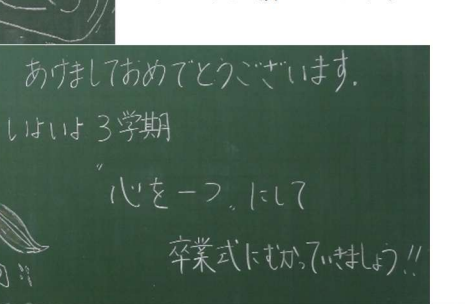 あけましておめでとうございます.
いよいよ3学期
“心を一つ„にして
卒業式にむかっていきましょう!!